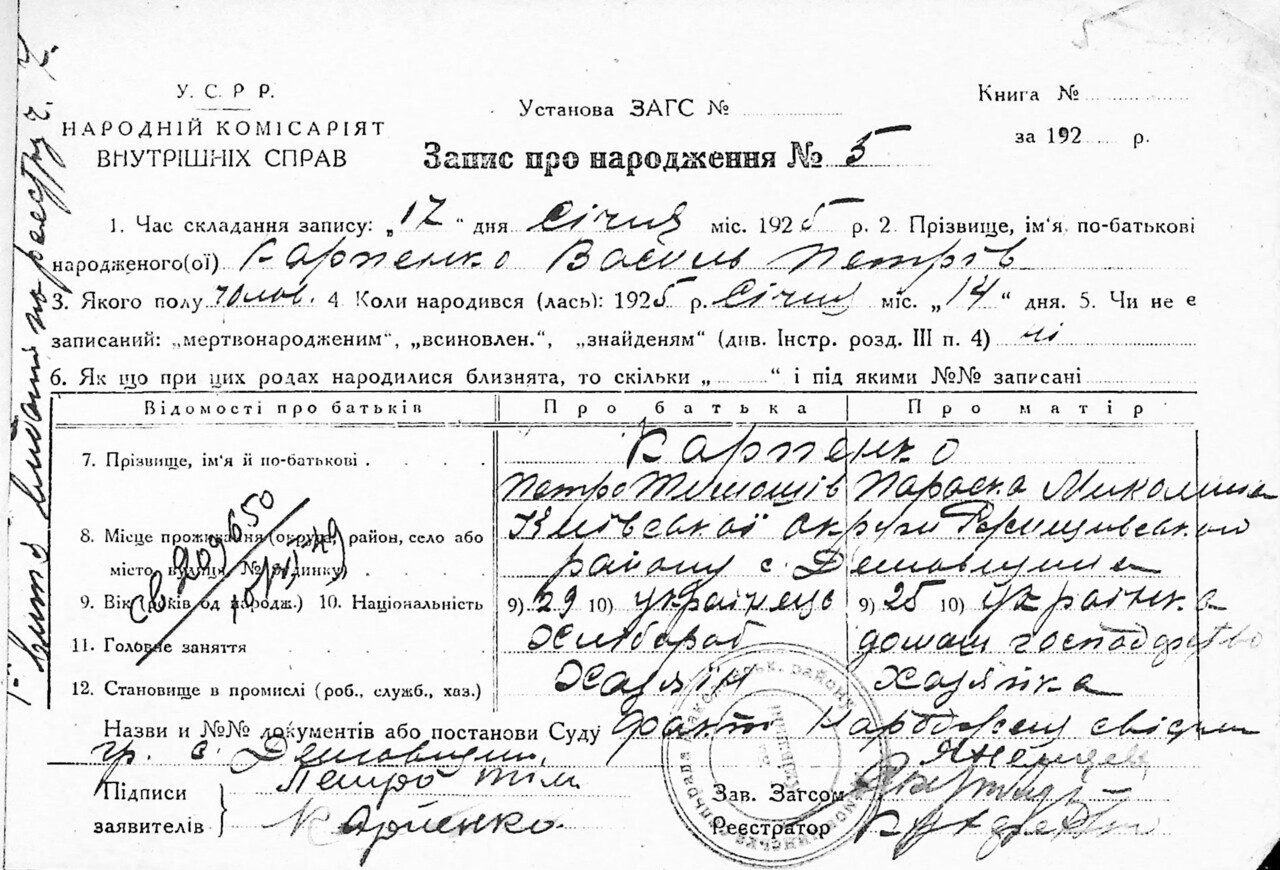 У. С. Р Р.
НАРОДНІЙ КОМІСАРІЯТ
ВНУТРІШНІХ СПРАВ
Установа ЗАГС №
Книга №
за 192 р.
Запис про народження № 5
1. Час складання запису: „17“ дня Січня міс. 1925 р. 2. Прізвище, ім'я по-батькові
народженого(ої) Карпенко Василь Петрів
3. Якого полу чолов. 4. Коли народився (лась): 1925 р. Січня міс. „14“ дня. 5. Чи не є
записаний: „мертвонародженим“, „всиновлен.“, „знайденям“ (див. Інстр. розд. III п. 4) ні
6. Як що при цих родах народилися близнята, то скільки „ “ і під якими №№ записані
Відомості про батьків Про батька Про матір
7. Прізвище, ім'я й по-батькові Карпенко
Петро Тимошів Параска Миколина
8. Місце проживання (округа, район, село або Київської округи
місто, вулиця № будинку) району с.
9. Вік (років од народж.) 10. Національність 9) 29 10) українець 9) 25 10) українка
11. Головне заняття Хлібороб домаш господарство
12. Становище в промислі (роб., служб., хаз.) Хазяїн Хазяйка
св 209650
Назви и №№ документів або постанови Суду факт
гр. с.
Підписи
заявителів
Петро Тим
Карпенко
Зав. Загсом
Реєстратор